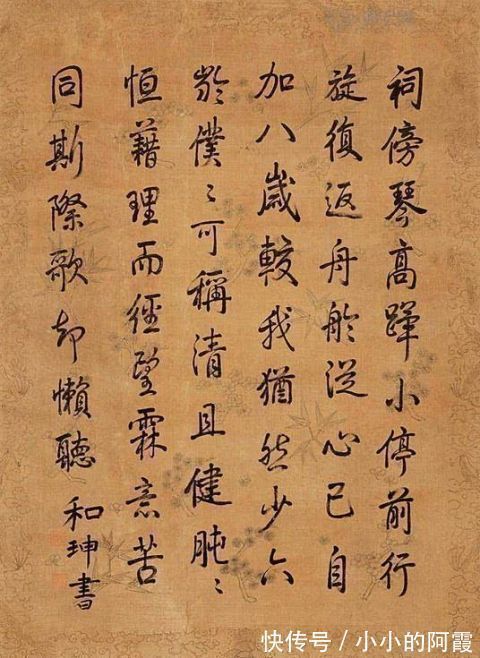 祠傍琴高蹕小停前行
旋復返舟舲從心已自
加八歲較我猶然少六
齡僕〻可稱清且健肫〻
恒藉理而經望霖意苦
同斯際歌却懶聽 和珅書
快传号 / 小小的阿霞